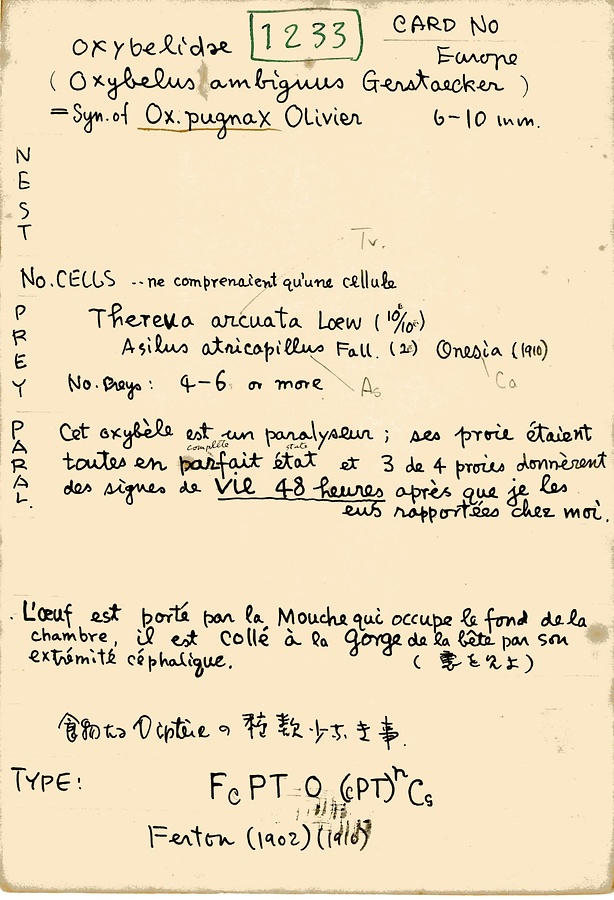 oxybelidae 1233 CARD NO
Europe
( Oxybelus ambiguus Gerstaecker )
= Syn. of Ox. pugnax Olivier 6-10 mm.
NEST
Tv.
No. CELLS -- ne comprenaient qu'une cellule
PREY
Thereva arcuata Loew (10/10)
Asilus atricapillus Fall. (2) Onesia (1910)
No. Preys: 4-6 or more As Ca
PARAL.
Cet oxybèle est un paralyseur ; ses proie étaient
complète state
toutes en parfait état et 3 de 4 proies donnèrent
des signes de vie 48 heures après que je les
eus rapportées chez moi.
. L'œuf est porté par la Mouche qui occupe le fond de la
chambre, il est collé à la gorge de la bête par son
extrémité céphalique. (裏を見よ)
食物たる Diptère の種数少なき事.
TYPE: FcPT O (cPT)ⁿ Cs
Ferton (1902) (1910)